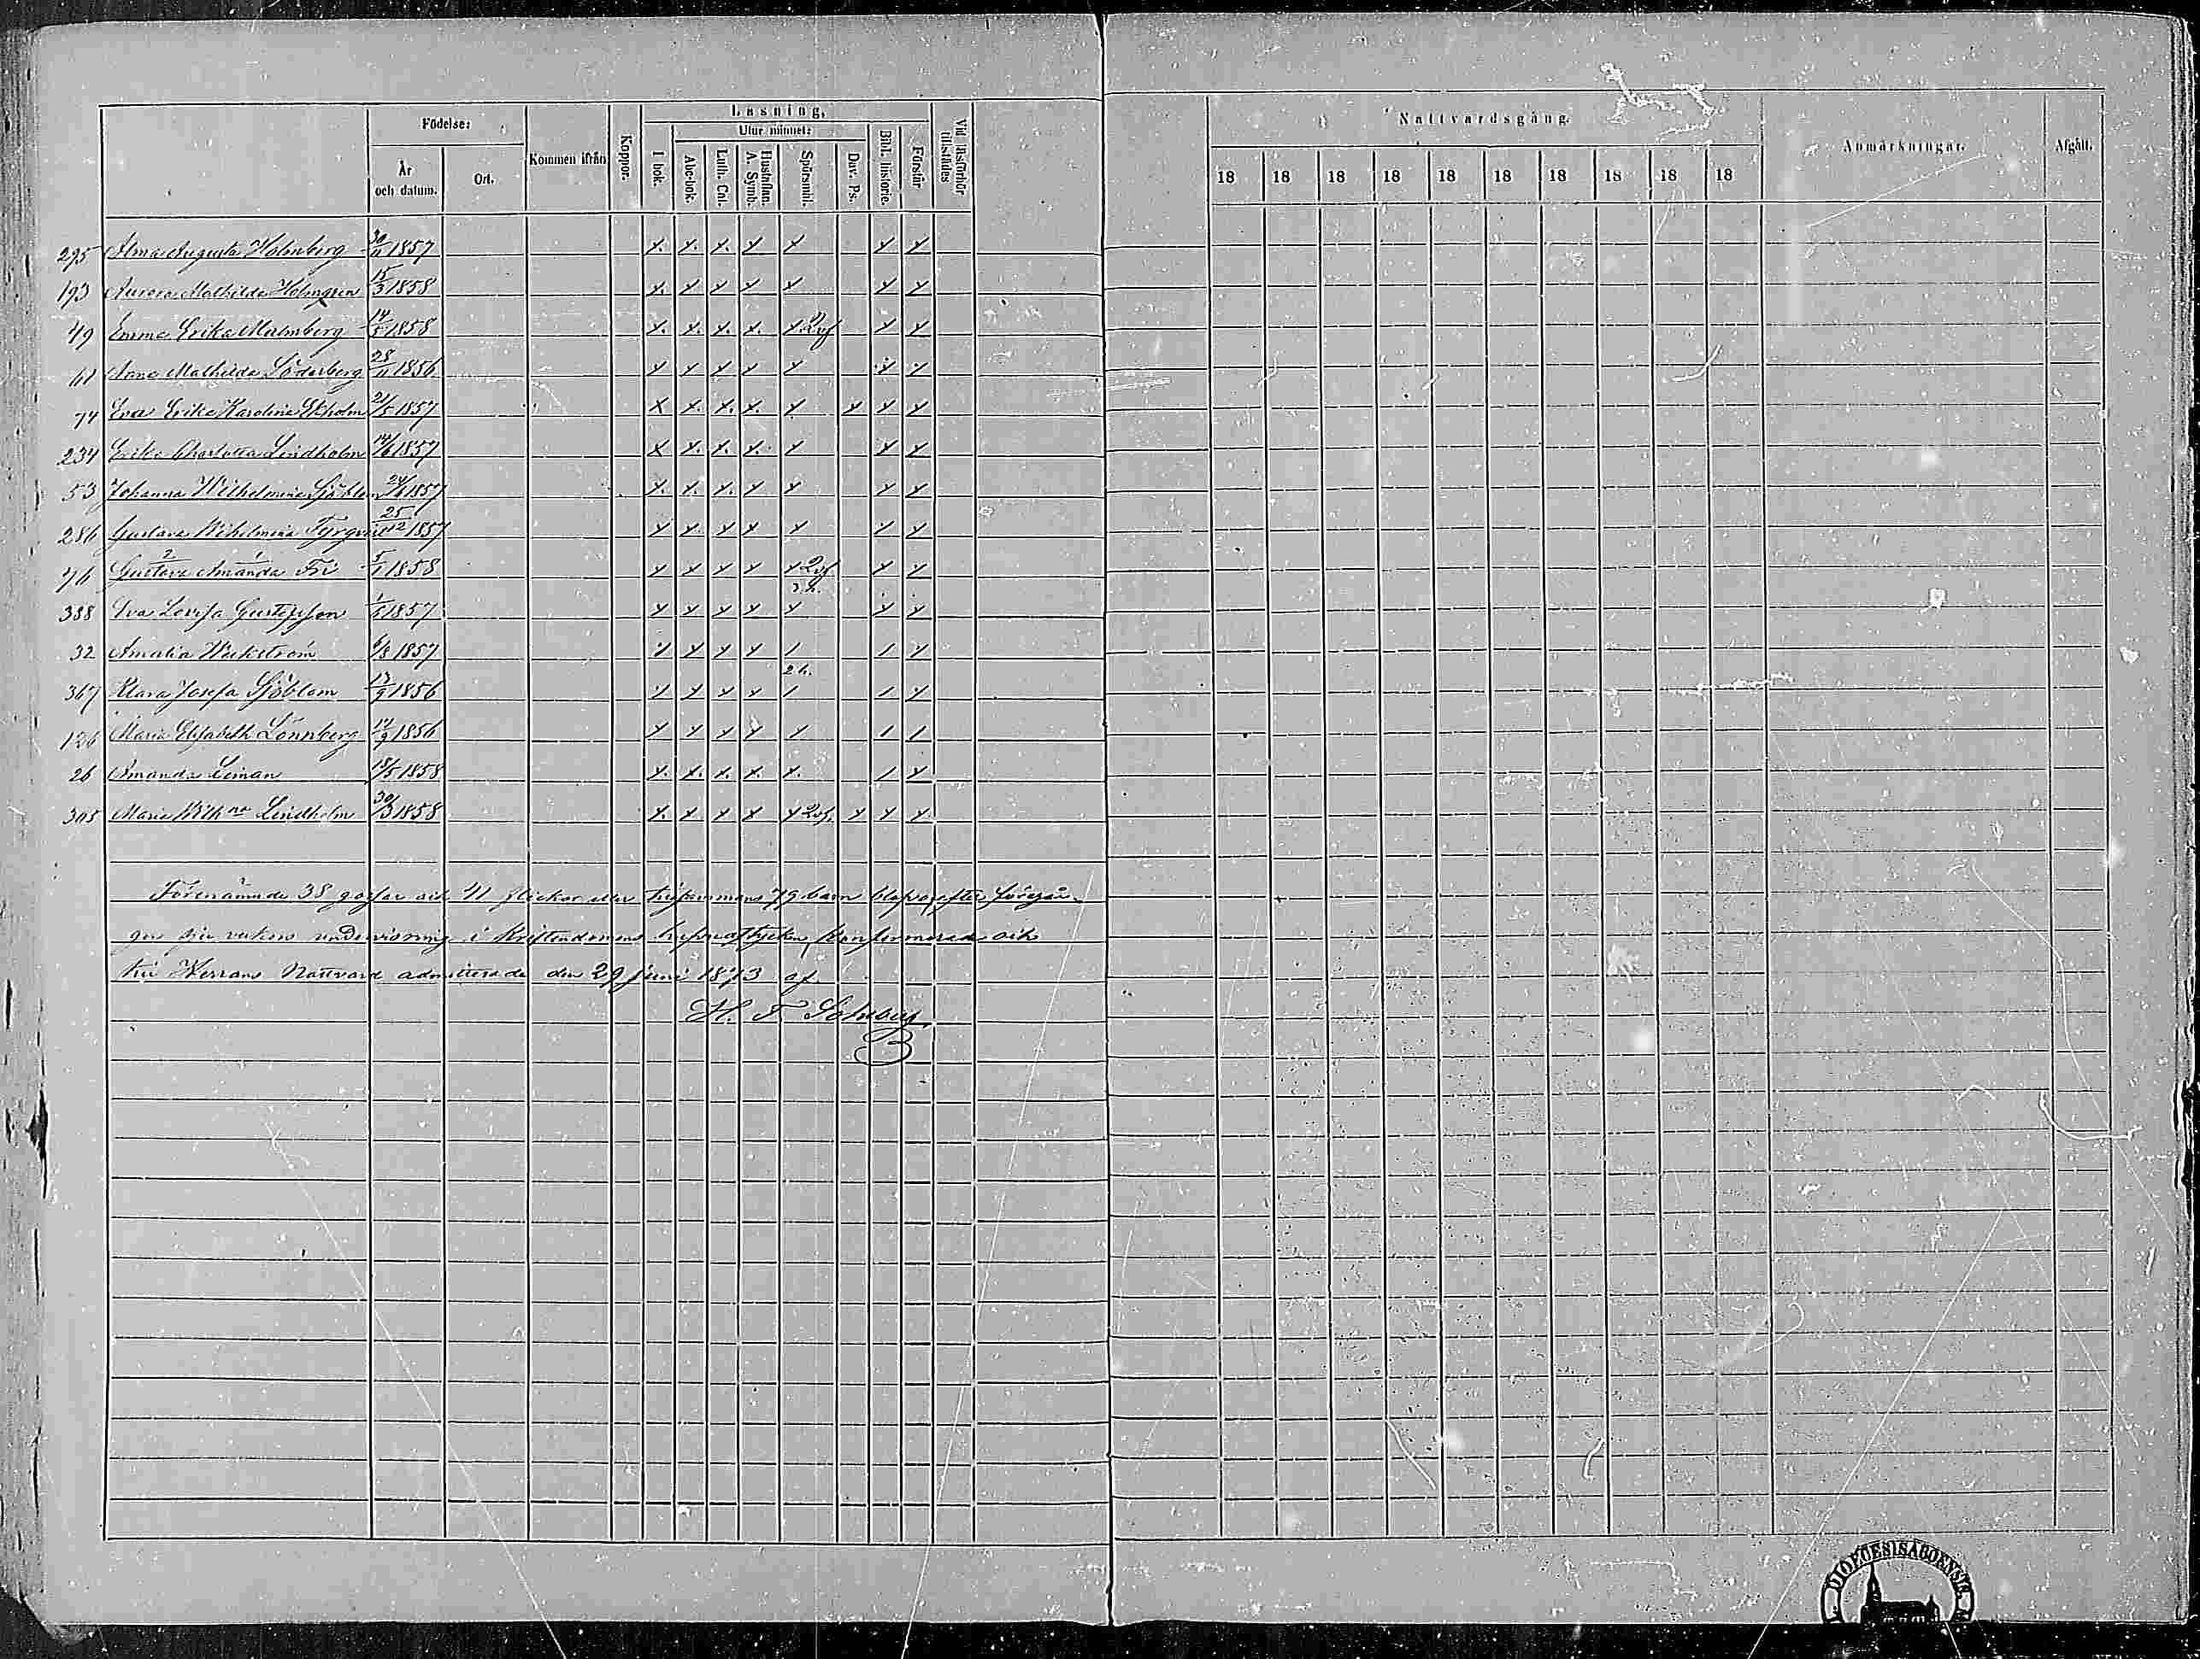 Läsning.
Födelse:
Utur minnet:
År och datum.
Ort.
Kommen ifrån
Koppor.
I bok.
Abc-bok.
Luth. Cat.
Hustaflan. A. Symb.
Spörsmål.
Dav. Ps.
Bibl. historie.
Förstår
Vid läsförhör tillstädes
Nattvardsgång.
Anmärkningar.
Afgått.
18 18 18 18 18 18 18 18 18 18
295 Alma Augusta Holmberg 30/11 1857
193 Aurora Mathilda Holmgren 15/3 1858
49 Emma Erika Malmberg 1858 2vf
61 Anna Mathilda Söderberg 28/11 1856
74 Eva Erika Karolina Ekholm 21/5 1857
234 Erika Charlotta Lindholm 1857
53 Johanna Wilhelmina Sjöblom 1857
286 Gustava Wilhelmina 25/12 1857
76 Gustava Amanda Fri 1858 2vf
388 Eva Lovisa Gustafsson 1857
32 Amalia 1857
367 Klara Josefa Sjöblom 13/9 1856
126 Maria Elisabeth Lönnberg 14/9 1856
26 Amanda Liman 18/5 1858
305 Maria Wilh:na Lindholm 30/3 1858
Förenämnde 38 gossar och 41 flickor eller tillsammans 79 barn blefvo, efter föregån-
gen sju veckors undervisning i Kristendomens hufvudstycken, konfirmerade och
till Herrans Nattvard admitterade den 29 juni 1873 af
H. F.
DIOECESIS ABOENSIS